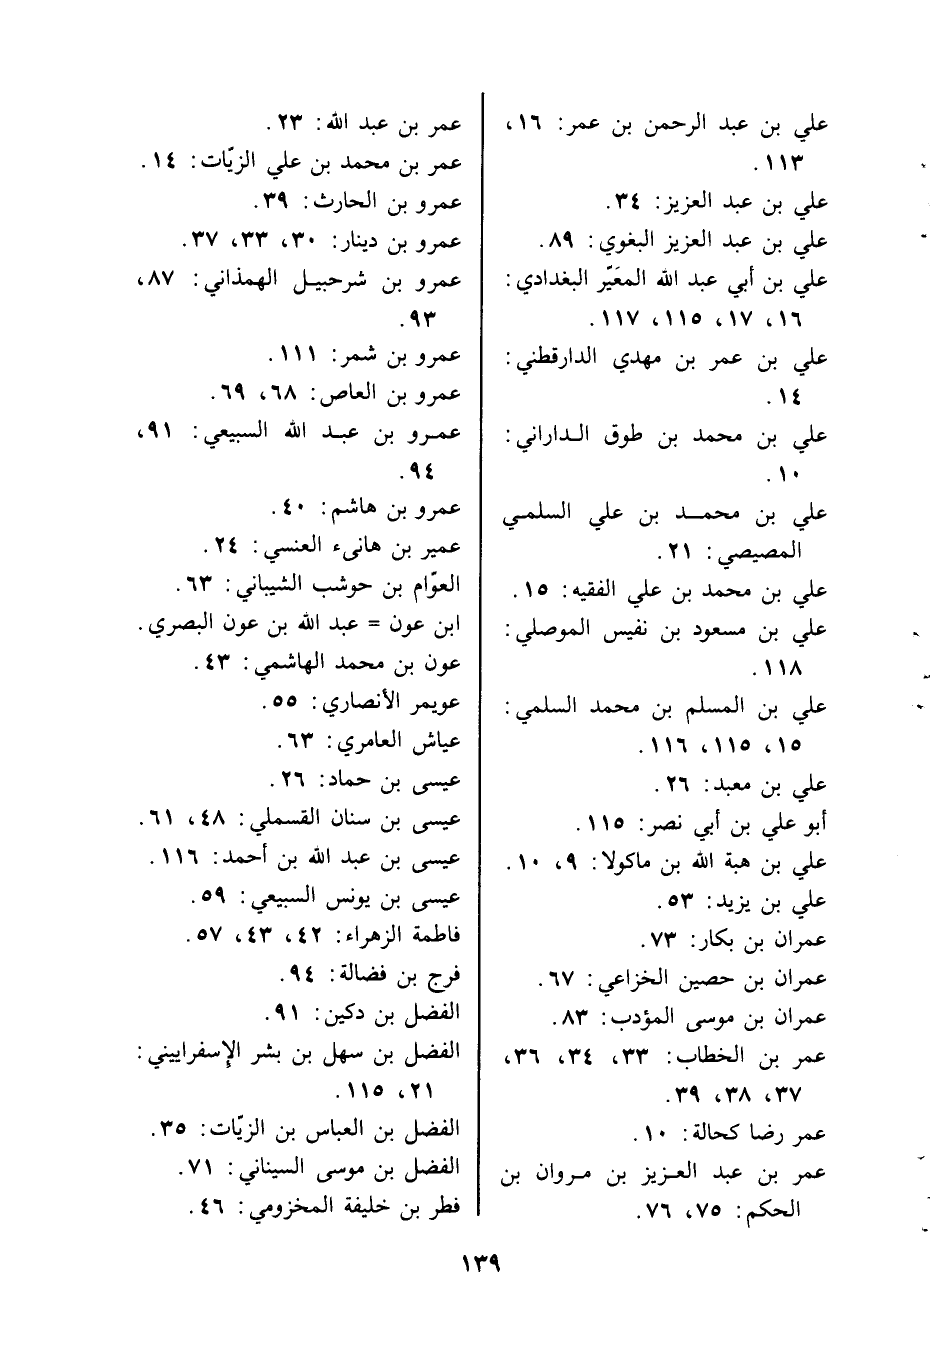 علي بن عبد الرحمن بن عمر: ١٦،
١١٣.
علي بن عبد العزيز: ٣٤.
علي بن عبد العزيز البغوي: ٨٩.
علي بن أبي عبد الله المعَيّر البغدادي:
١٦، ١٧، ١١٥، ١١٧.
علي بن عمر بن مهدي الدارقطني:
١٤.
علي بن محمد بن طوق الداراني:
١٠.
علي بن محمد بن علي السلمي
المصيصي: ٢١.
علي بن محمد بن علي الفقيه: ١٥.
علي بن مسعود بن نفيس الموصلي:
١١٨.
علي بن المسلم بن محمد السلمي:
١٥، ١١٥، ١١٦.
علي بن معبد: ٢٦.
أبو علي بن أبي نصر: ١١٥.
علي بن هبة الله بن ماكولا: ٩، ١٠.
علي بن يزيد: ٥٣.
عمران بن بكار: ٧٣.
عمران بن حصين الخزاعي: ٦٧.
عمران بن موسى المؤدب: ٨٣.
عمر بن الخطاب: ٣٣، ٣٤، ٣٦،
٣٧، ٣٨، ٣٩.
عمر رضا كحالة: ١٠.
عمر بن عبد العزيز بن مروان بن
الحكم: ٧٥، ٧٦.
عمر بن عبد الله: ٢٣.
عمر بن محمد بن علي الزيّات: ١٤.
عمرو بن الحارث: ٣٩.
عمرو بن دينار: ٣٠، ٣٣، ٣٧.
عمرو بن شرحبيل الهمذاني: ٨٧،
٩٣.
عمرو بن شمر: ١١١.
عمرو بن العاص: ٦٨، ٦٩.
عمرو بن عبد الله السبيعي: ٩١،
٩٤.
عمرو بن هاشم: ٤٠.
عمير بن هانىء العنسي: ٢٤.
العوّام بن حوشب الشيباني: ٦٣.
ابن عون = عبد الله بن عون البصري.
عون بن محمد الهاشمي: ٤٣.
عويمر الأنصاري: ٥٥.
عياش العامري: ٦٣.
عيسى بن حماد: ٢٦.
عيسى بن سنان القسملي: ٤٨، ٦١.
عيسى بن عبد الله بن أحمد: ١١٦.
عيسى بن يونس السبيعي: ٥٩.
فاطمة الزهراء: ٤٢، ٤٣، ٥٧.
فرج بن فضالة: ٩٤.
الفضل بن دكين: ٩١.
الفضل بن سهل بن بشر الإسفراييني:
٢١، ١١٥.
الفضل بن العباس بن الزيّات: ٣٥.
الفضل بن موسى السيناني: ٧١.
فطر بن خليفة المخزومي: ٤٦.
١٣٩